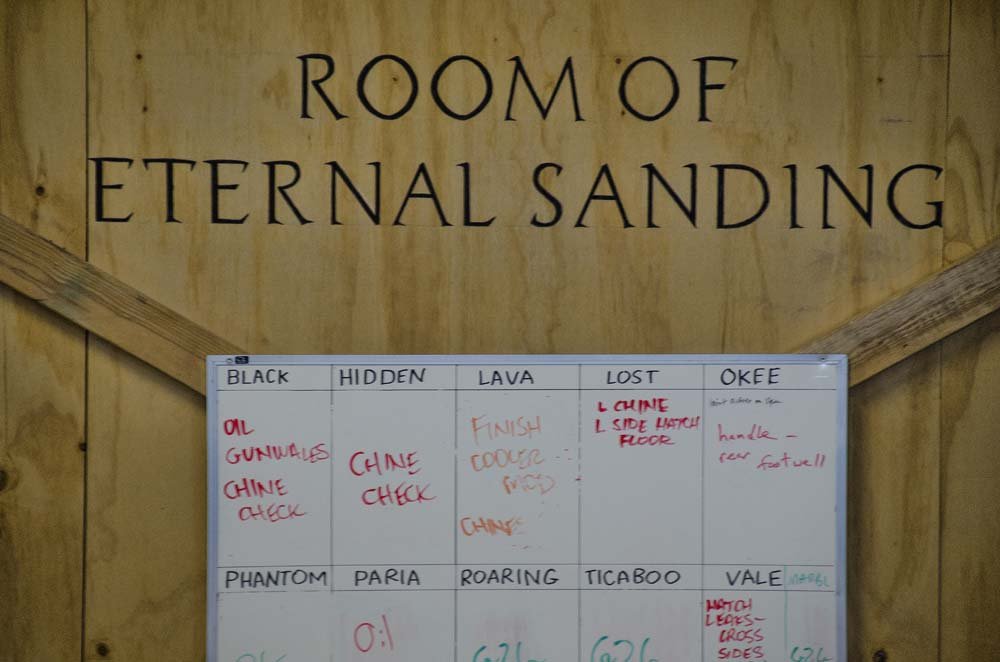 ROOM OF
ETERNAL SANDING
BLACK HIDDEN LAVA LOST OKEE
OIL
GUNWALES
CHINE
CHECK
CHINE
CHECK
FINISH
COOLER
MOD
CHINES
L CHINE
L SIDE HATCH
FLOOR
handle -
rear footwell
PHANTOM PARIA ROARING TICABOO VALE MARBL
Oil
HATCH
LEAKS-
CROSS
SIDES